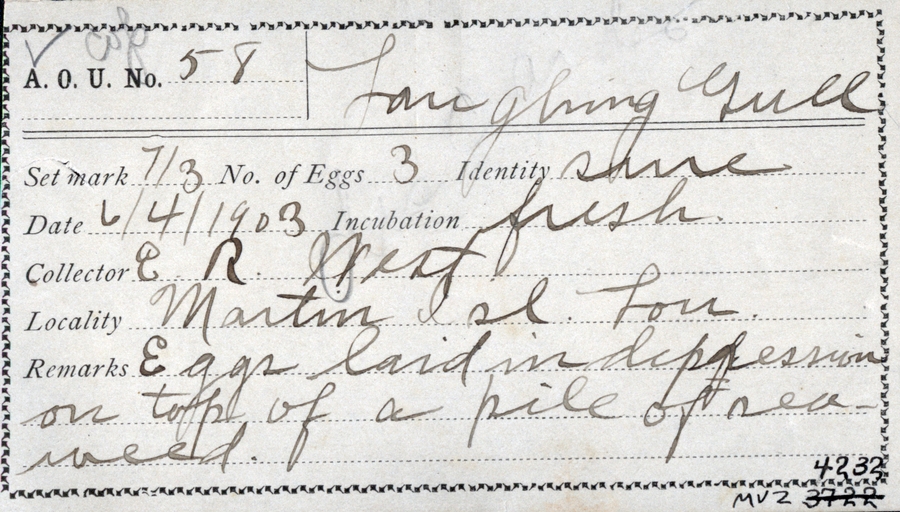 A. O. U. No. 58 Laughing Gull
Set mark 7/3 No. of Eggs 3 Identity sure
Date 6/4/1903 Incubation fresh.
Collector E. R. West
Locality Martin Isl. Lou.
Remarks Eggs laid in depression
on top of a pile of sea-
weed.
4232
MVZ 3722